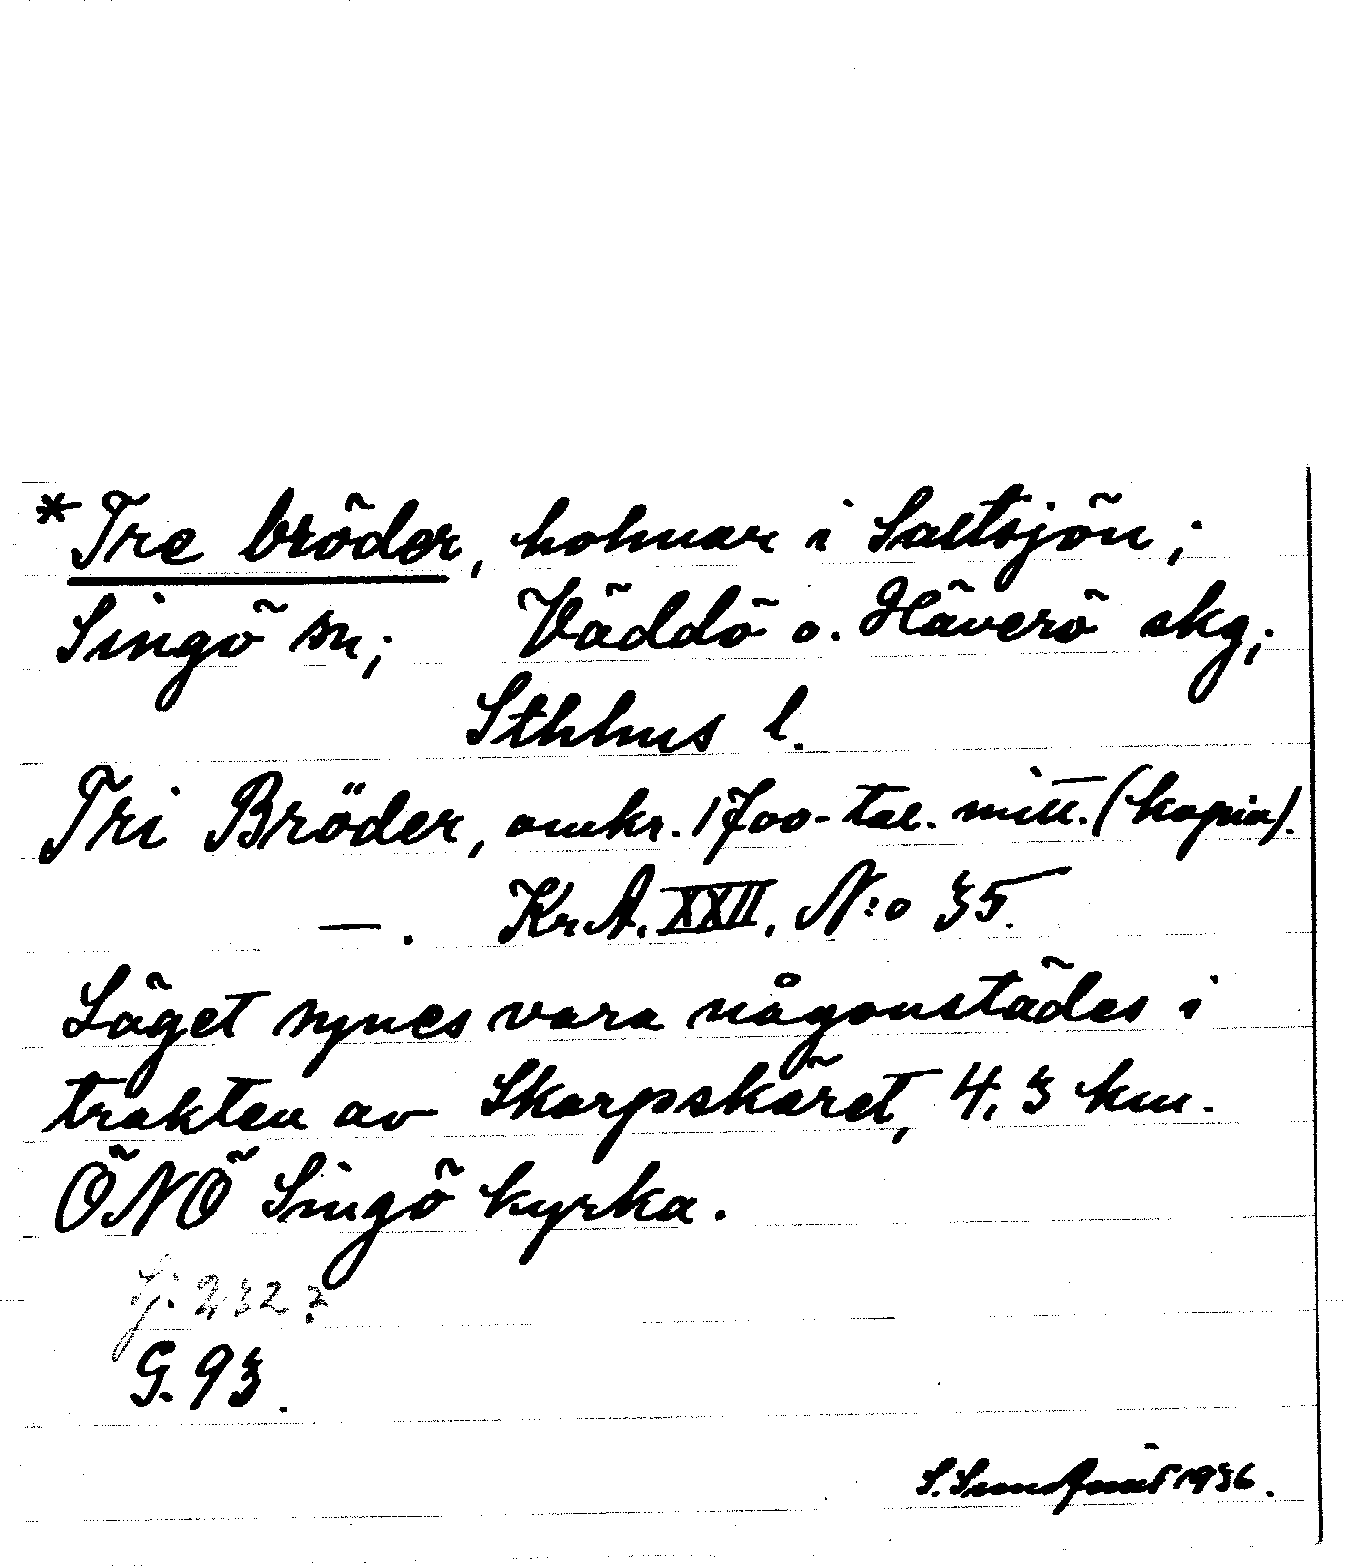 *Tre bröder, holmar i Saltsjön;
Singö sn; Väddö o. Häverö skg;
Sthlms l.
Tri Bröder, omkr. 1700-tal. mitt. (kopia).
—. KrA. XXII. N:o 35.
Läget synes vara någonstädes i
trakten av Skarpskäret, 4,3 km.
ÖNÖ Singö kyrka.
G. 2327
G. 93.
S. Sundqvist 1936.